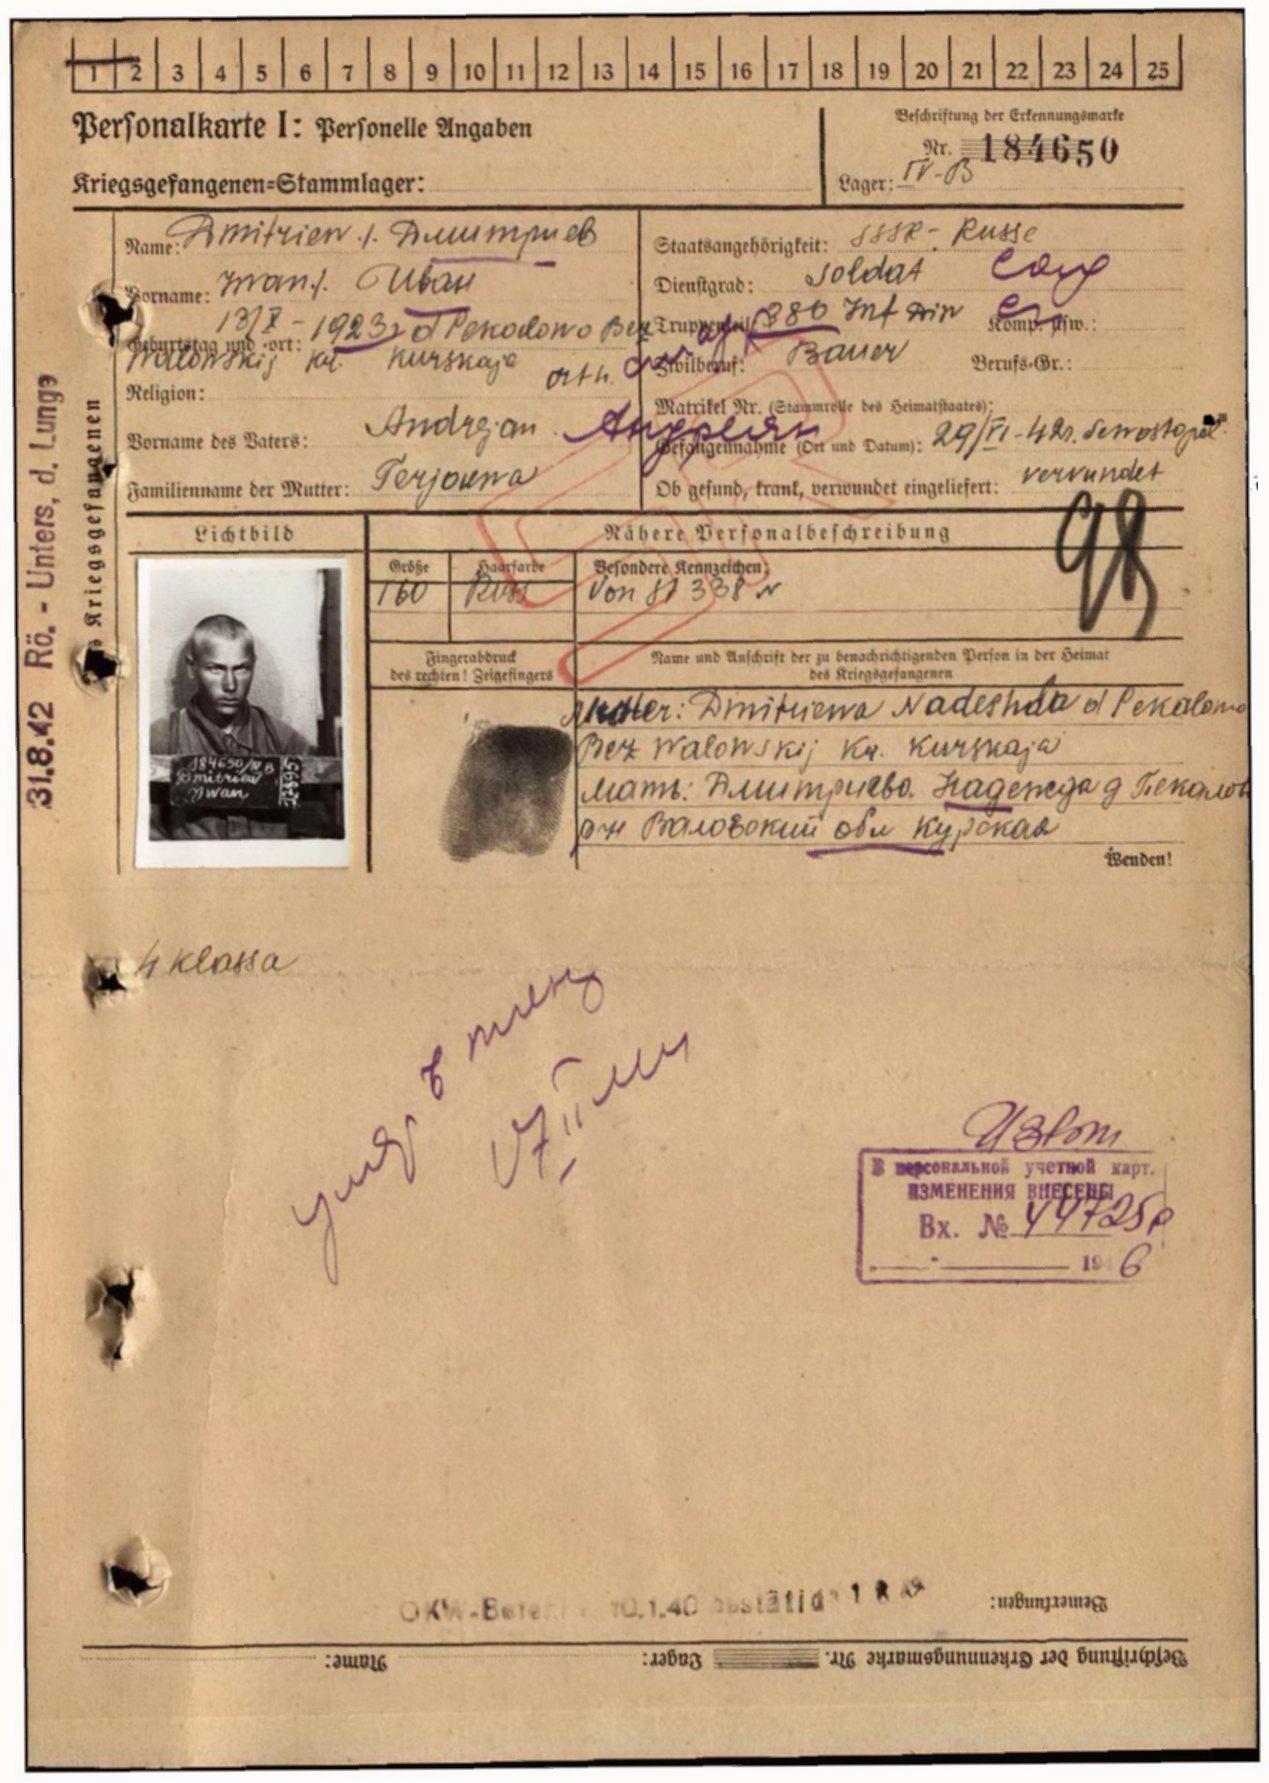 1 2 3 4 5 6 7 8 9 10 11 12 13 14 15 16 17 18 19 20 21 22 23 24 25
Personalkarte I: Personelle Angaben
Beschriftung der Erkennungsmarke
Nr. 184650
Kriegsgefangenen=Stammlager:
Lager: IV-B
Name: Dmitriew /. Дмитриев
Staatsangehörigkeit: SSSR - Russe
Vorname: Iwan /. Иван
Dienstgrad: Soldat
Geburtstag und -ort: 13/X - 1923 d Pekodowo Bez
Truppenteil: 380 Inf Diw Komp. usw.:
Walowskij Kr. Kurskaja
Zivilberuf: Bauer Berufs-Gr.:
Religion: orth.
Matrikel Nr. (Stammrolle des Heimatstaates):
Vorname des Vaters: Andrejan Андреян
Gefangennahme (Ort und Datum): 29/VI - 42 Sewostopol
Familienname der Mutter:
Ob gesund, krank, verwundet eingeliefert: verwundet
des Kriegsgefangenen
31.8.42 Rö. - Unters. d. Lunge
98
Lichtbild
Nähere Personalbeschreibung
Größe Haarfarbe Besondere Kennzeichen:
160 Von St 338
Fingerabdruck
des rechten! Zeigefingers
Name und Anschrift der zu benachrichtigenden Person in der Heimat
des Kriegsgefangenen
Mutter: Dmitriewa Nadeshda d Pekalowo
Bez Walowskij Kr. Kurskaja
Мать: Дмитриева Надежда д Пекалов
р-н Валовский обл Курская
184650/IV B
Dmitriew
Iwan
Wenden!
4 klassa
умер в плену
Извещ
В персональной учетной карт.
ИЗМЕНЕНИЯ ВНЕСЕНЫ
Вх. № 44725с
1946
OKW- 10.1.40 bestätigt
Bemerkungen:
Beschriftung der Erkennungsmarke Nr. Lager: Name: